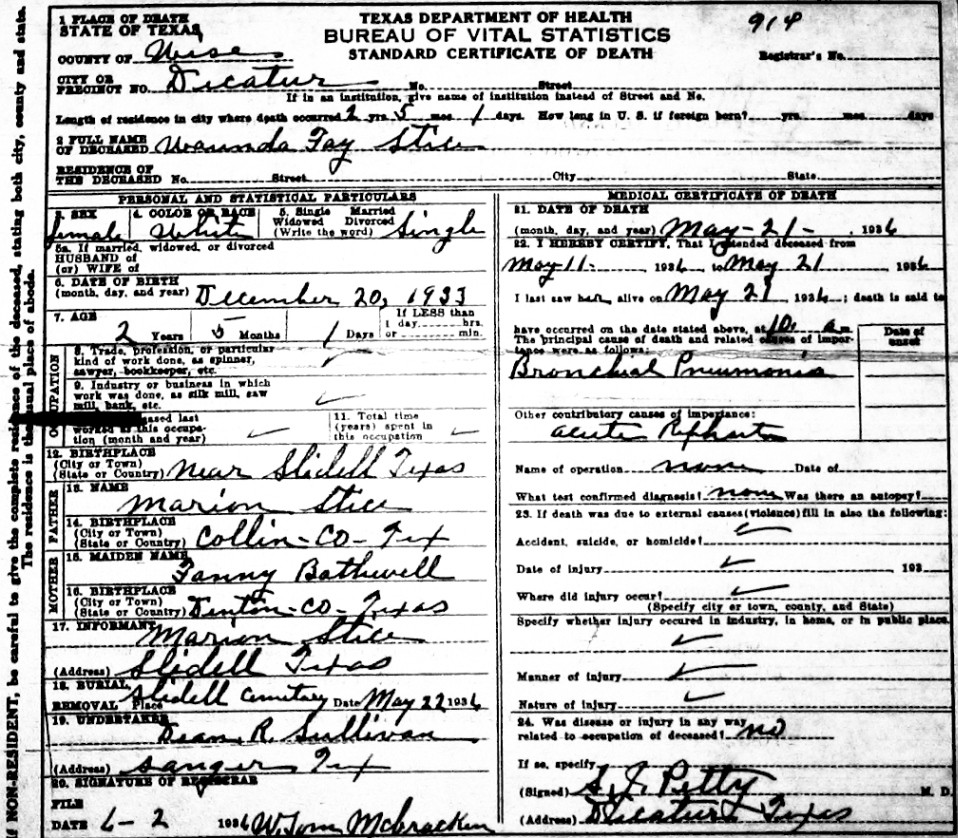 TEXAS DEPARTMENT OF HEALTH
BUREAU OF VITAL STATISTICS
STANDARD CERTIFICATE OF DEATH
914
Registrar's No.
1 PLACE OF DEATH
STATE OF TEXAS
COUNTY OF Wise
CITY OR PRECINCT NO. Decatur No. Street
If in an institution, give name of institution instead of Street and No.
Length of residence in city where death occurred 2 yrs. 5 mos. 1 days. How long in U. S. if foreign born? yrs. mos. days
2 FULL NAME OF DECEASED Waunda Fay Stice
RESIDENCE OF THE DECEASED No. Street City State
PERSONAL AND STATISTICAL PARTICULARS
3. SEX female
4. COLOR OR RACE White
5. Single Married Widowed Divorced (Write the word) Single
5a. If married, widowed, or divorced
HUSBAND of
(or) WIFE of
6. DATE OF BIRTH
(month, day, and year) December 20, 1933
7. AGE 2 Years 5 Months 1 Days
If LESS than 1 day hrs. or min.
OCCUPATION
8. Trade, profession, or particular
kind of work done, as spinner,
sawyer, bookkeeper, etc.
9. Industry or business in which
work was done, as silk mill, saw
mill, bank, etc.
eased last
worked at this occupa-
tion (month and year)
11. Total time
(years) spent in
this occupation
12. BIRTHPLACE
(City or Town)
(State or Country) near Slidell Texas
FATHER
13. NAME
Marion Stice
14. BIRTHPLACE
(City or Town)
(State or Country) Collin-Co-Tex
MOTHER
15. MAIDEN NAME
Fanny Bothwell
16. BIRTHPLACE
(City or Town)
(State or Country) Denton-Co-Texas
17. INFORMANT
Marion Stice
(Address) Slidell Texas
18. BURIAL
REMOVAL Place Slidell Cemetery Date May 22 1936
19. UNDERTAKER
Dean R. Sullivan
(Address) Sanger Tex
20. SIGNATURE OF REGISTRAR
FILE
DATE 6-2 1936 W. Tom McCracken
MEDICAL CERTIFICATE OF DEATH
21. DATE OF DEATH
(month, day, and year) May-21-, 1936
22. I HEREBY CERTIFY, That I attended deceased from
May 11- 1936 to May 21 1936
I last saw her alive on May 21 1936; death is said to
have occurred on the date stated above, at 10 a m.
The principal cause of death and related causes of impor-
tance were as follows:
Date of onset
Bronchial Pneumonia
Other contributory causes of importance:
acute
Name of operation none Date of
What test confirmed diagnosis? none Was there an autopsy?
23. If death was due to external causes (violence) fill in also the following:
Accident, suicide, or homicide?
Date of injury , 193
Where did injury occur?
(Specify city or town, county, and State)
Specify whether injury occured in industry, in home, or in public place.
Manner of injury
Nature of injury
24. Was disease or injury in any way
related to occupation of deceased? no
If so, specify
(Signed) S. J. Petty M. D.
(Address) Decatur Texas
If NON-RESIDENT, be careful to give the complete residence of the deceased, stating both city, county and state.
The residence is the usual place of abode.